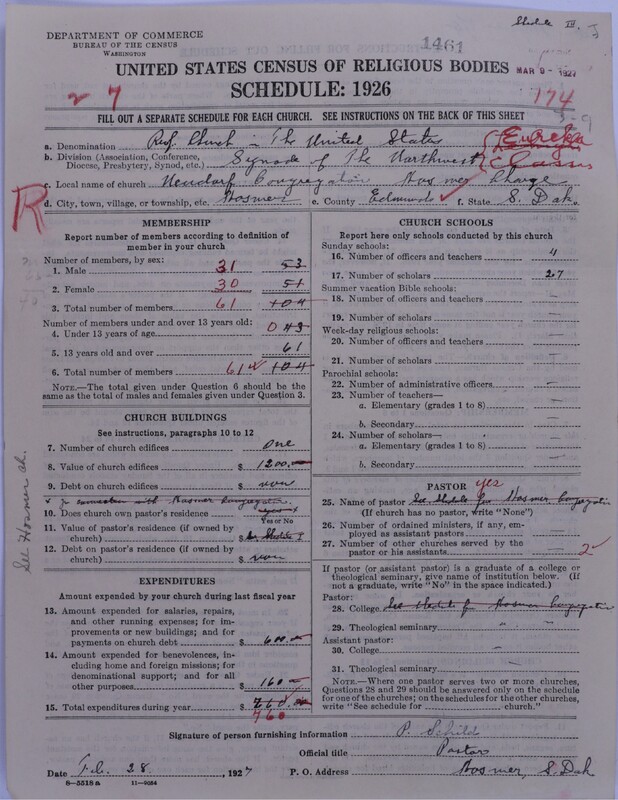 Schedule III.
DEPARTMENT OF COMMERCE
BUREAU OF THE CENSUS
WASHINGTON
1461
UNITED STATES CENSUS OF RELIGIOUS BODIES
MAR 9 - 1927
SCHEDULE: 1926
27
174
3-9
FILL OUT A SEPARATE SCHEDULE FOR EACH CHURCH. SEE INSTRUCTIONS ON THE BACK OF THIS SHEET
a. Denomination Ref. Church in The United States
b. Division (Association, Conference, Diocese, Presbytery, Synod, etc.) Synode of The Northwest
Eureka
Classis
c. Local name of church Neudorf Congregation Hosmer Charge
d. City, town, village, or township, etc. Hosmer e. County Edmunds f. State S. Dak.
R
MEMBERSHIP
Report number of members according to definition of
member in your church
Number of members, by sex:
1. Male 31 53
2. Female 30 51
3. Total number of members 61 104
Number of members under and over 13 years old:
4. Under 13 years of age 0 43
5. 13 years old and over 61
6. Total number of members 61 104
NOTE.—The total given under Question 6 should be
same as the total of males and females given under Question 3.
CHURCH BUILDINGS
See instructions, paragraphs 10 to 12
7. Number of church edifices one
8. Value of church edifices $ 1200.00
9. Debt on church edifices $ non
x in connection with Hosmer Congregation.
10. Does church own pastor's residence yes x
Yes or No
11. Value of pastor's residence (if owned by
church) $ See Schedule I
12. Debt on pastor's residence (if owned by
church) $ non
See Hosmer ch.
EXPENDITURES
Amount expended by your church during last fiscal year
13. Amount expended for salaries, repairs,
and other running expenses; for im-
provements or new buildings; and for
payments on church debt $ 600.00
14. Amount expended for benevolences, in-
cluding home and foreign missions; for
denominational support; and for all
other purposes $ 160
15. Total expenditures during year $ 760
CHURCH SCHOOLS
Report here only schools conducted by this church
Sunday schools:
16. Number of officers and teachers 4
17. Number of scholars 27
Summer vacation Bible schools:
18. Number of officers and teachers —
19. Number of scholars —
Week-day religious schools:
20. Number of officers and teachers —
21. Number of scholars —
Parochial schools:
22. Number of administrative officers —
23. Number of teachers—
a. Elementary (grades 1 to 8) —
b. Secondary —
24. Number of scholars—
a. Elementary (grades 1 to 8) —
b. Secondary —
PASTOR yes
25. Name of pastor See Schedule for Hosmer Congregation
(If church has no pastor, write "None")
26. Number of ordained ministers, if any, em-
ployed as assistant pastors —
27. Number of other churches served by the
pastor or his assistants 2
If pastor (or assistant pastor) is a graduate of a college or
theological seminary, give name of institution below. (If
not a graduate, write "No" in the space indicated.)
Pastor:
28. College See Schedule for Hosmer Congregation
29. Theological seminary
Assistant pastor:
30. College —
31. Theological seminary —
NOTE.—Where one pastor serves two or more churches,
Questions 28 and 29 should be answered only on the schedule
for one of the churches; on the schedules for the other churches,
write "See schedule for church."
Signature of person furnishing information P. Schild
Official title Pastor
Date Feb. 28, 1927 P. O. Address Hosmer, S. Dak
8—5518 a 11—9064